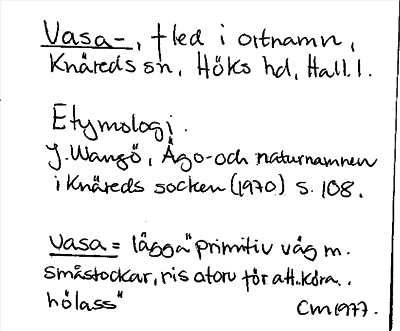 Vasa-, fled i ortnamn,
Knäreds sn, Höks hd, Hall. l.
Etymologi.
J. Wangö, Ägo- och naturnamnen
i Knäreds socken (1970) s. 108.
vasa = lägga "primitiv väg m.
småstockar, ris o torv för att köra
hölass"
CM 1977.